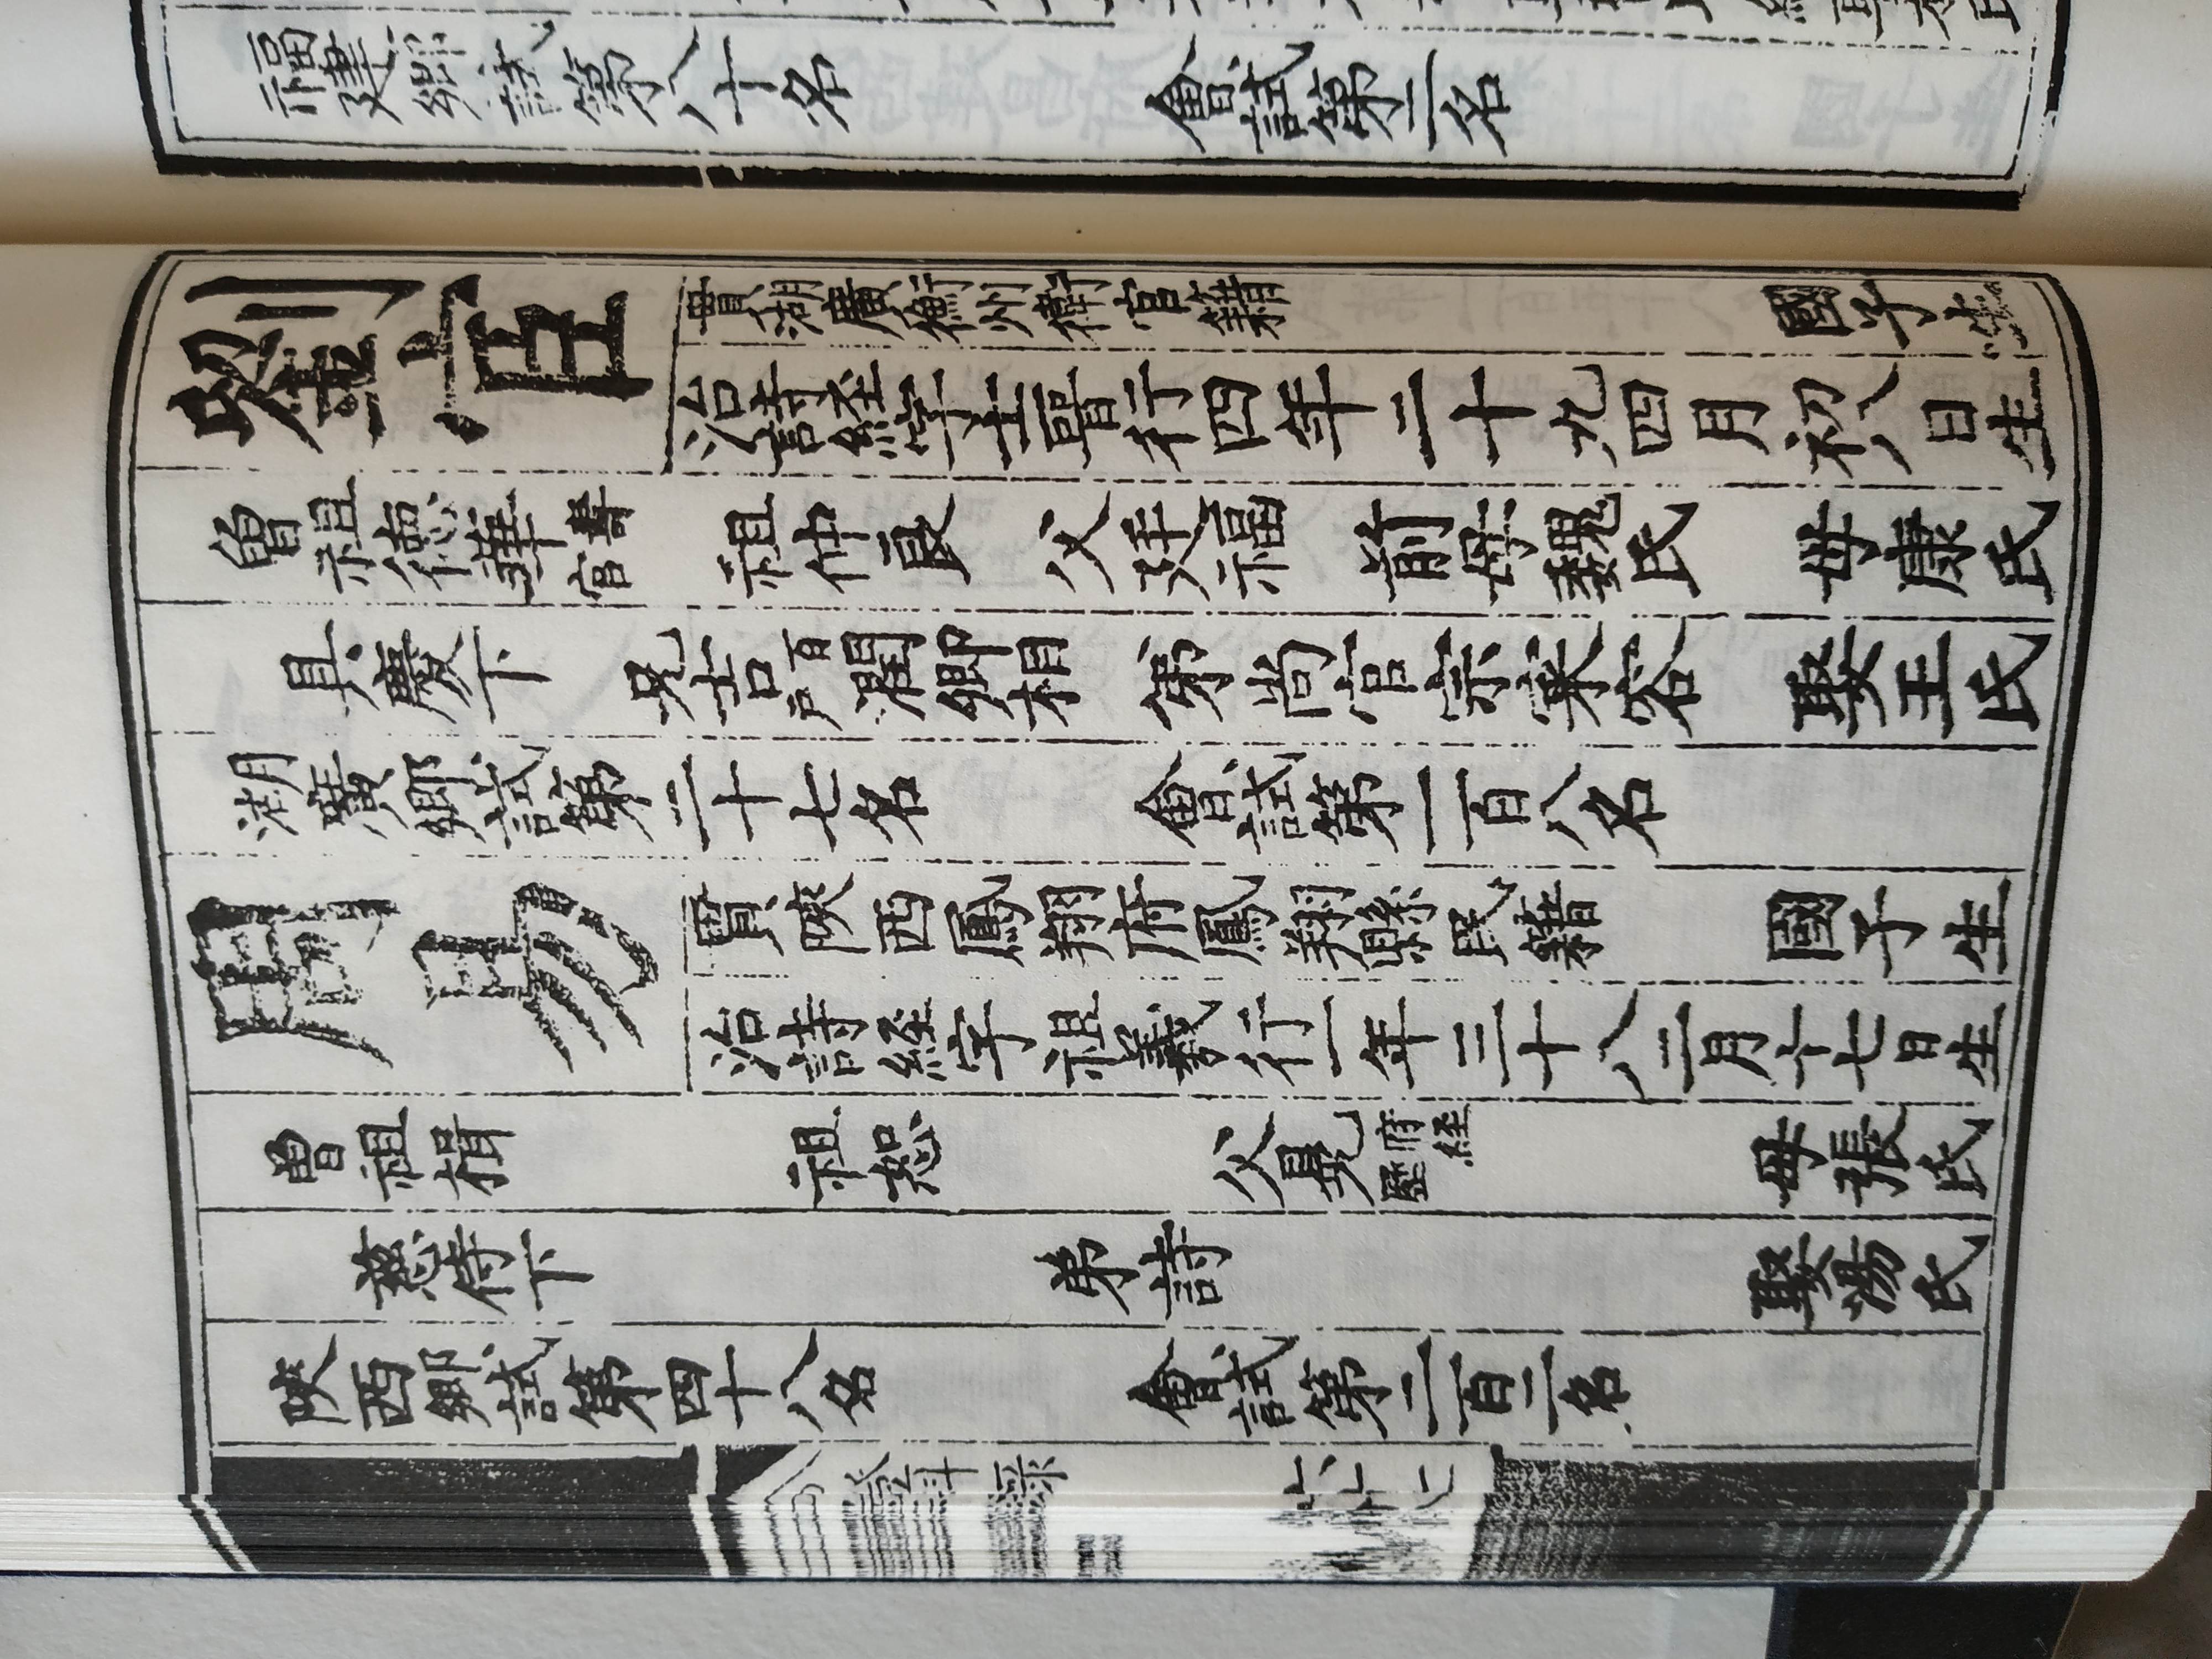 福建鄉試第八十名 會試第二名
劉官
貫湖廣衡州衛官籍 國子生
治詩經字士晉行四年二十九四月初八日生
曾祖德華 壽官 祖仲良 父廷福 前母魏氏 母康氏
具慶下 兄吉 百戶 潤卿相 弟尚官宗寀容 娶王氏
湖廣鄉試第二十七名 會試第一百八名
周易
貫陝西鳳翔府鳳翔縣民籍 國子生
治詩經字祖羲行一年三十八二月十七日生
曾祖楫 祖恕 父晃 府經歷 母張氏
慈侍下 弟詩 娶湯氏
陝西鄉試第四十八名 會試第二百二名
登科錄